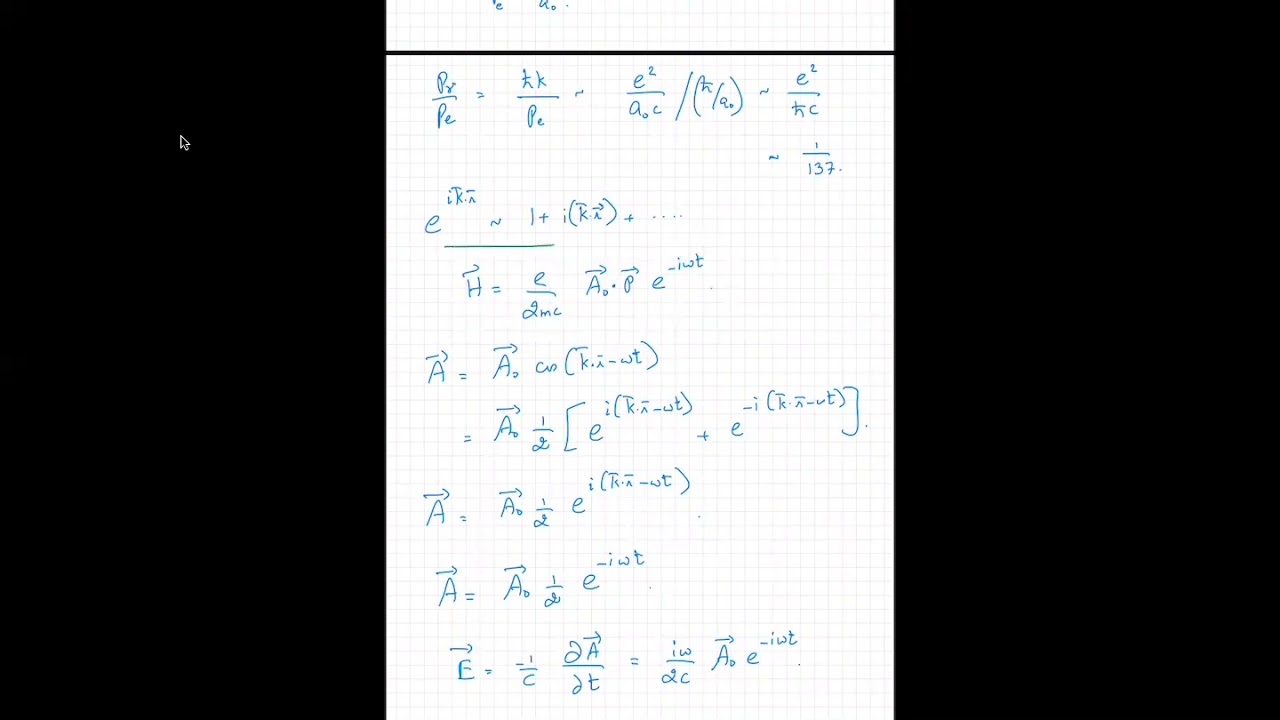 Pe a₀.
Pγ/Pe = ħk/Pe ~ e²/a₀c /(ħ/a₀) ~ e²/ħc
~ 1/137.
e^{ik̄·r̄} ~ 1 + i(k̄·r⃗) + ....
H⃗ = e/2mc A⃗₀·P⃗ e^{-iωt}.
A⃗ = A⃗₀ cos(k̄·r̄-ωt)
= A⃗₀ 1/2 [e^{i(k̄·r̄-ωt)} + e^{-i(k̄·r̄-ωt)}].
A⃗ = A⃗₀ 1/2 e^{i(k̄·r̄-ωt)}.
A⃗ = A⃗₀ 1/2 e^{-iωt}.
E⃗ = -1/c ∂A⃗/∂t = iω/2c A⃗₀ e^{-iωt}.